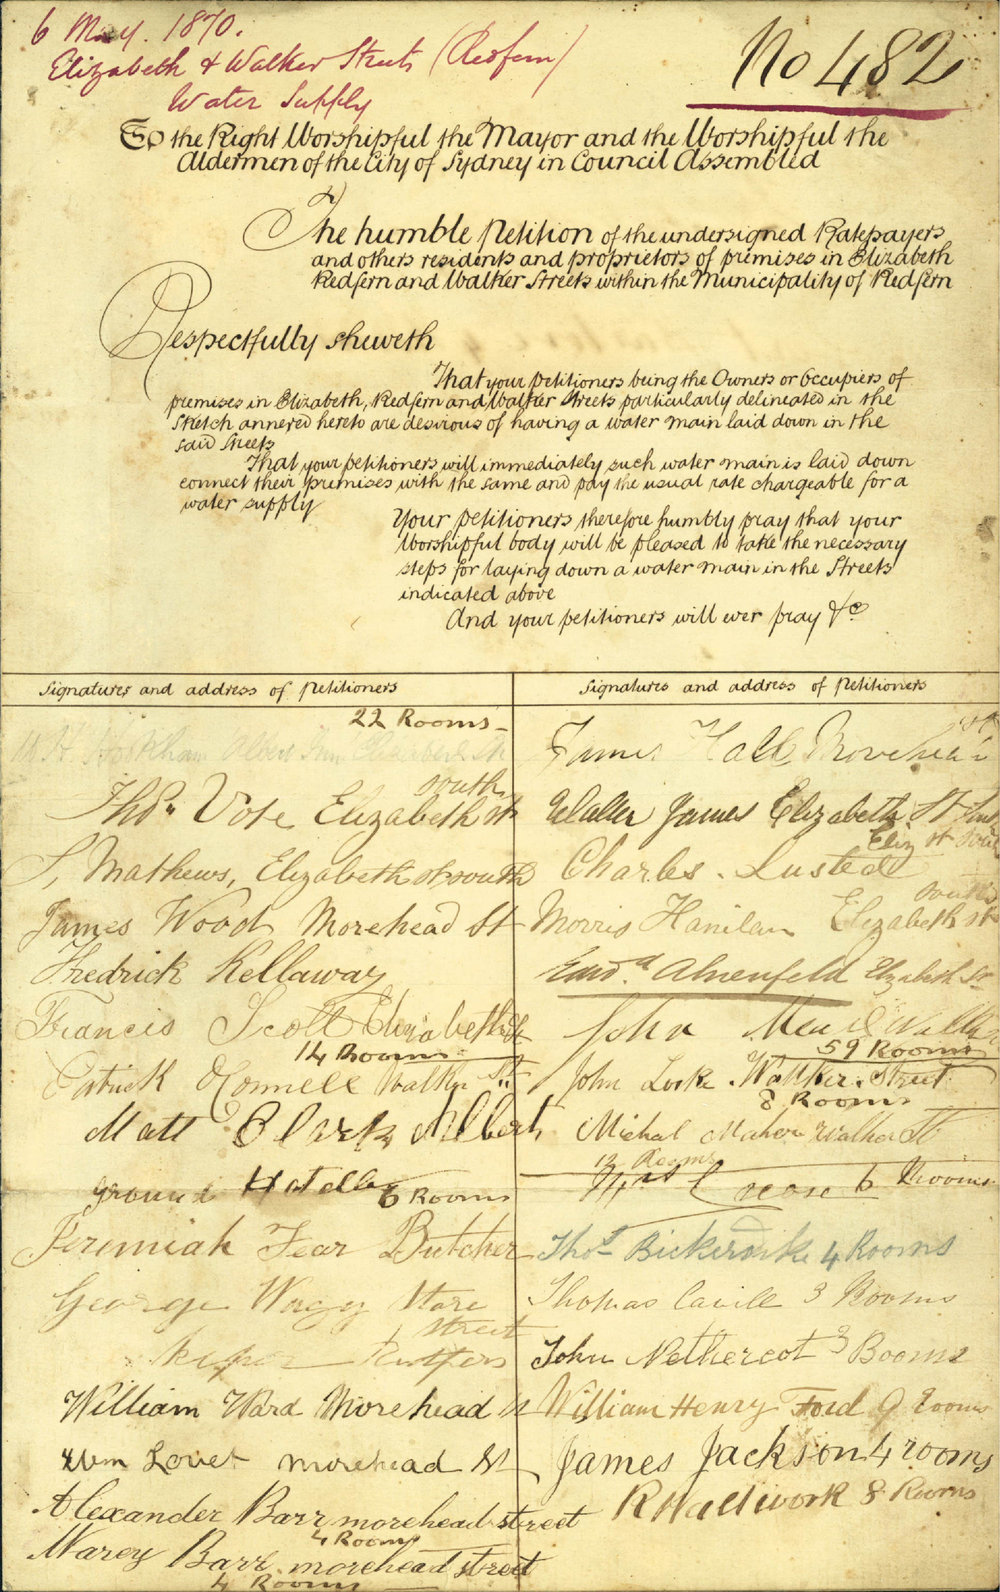 6 May. 1870.
Elizabeth & Walker Streets (Redfern)
Water Supply
No 482
To the Right Worshipful the Mayor and the Worshipful the
Aldermen of the City of Sydney in Council Assembled
The humble Petition of the undersigned Ratepayers
and others residents and proprietors of premises in Elizabeth
Redfern and Walker Streets within the Municipality of Redfern
Respectfully sheweth
That your petitioners being the Owners or Occupiers of
premises in Elizabeth, Redfern and Walker Streets particularly delineated in the
sketch annexed hereto are desirous of having a water main laid down in the
said Streets
That your petitioners will immediately such water main is laid down
connect their premises with the same and pay the usual rate chargeable for a
water supply
Your petitioners therefore humbly pray that your
Worshipful body will be pleased to take the necessary
steps for laying down a water main in the Streets
indicated above
And your petitioners will ever pray &c
Signatures and address of Petitioners
22 Rooms
south
Thos Vote Elizabeth st
S, Mathews, Elizabeth st south
James Wood Morehead St
Fhedrick Kellaway
Francis Scott Elizabeth St
14 Rooms
Patrick OConnell Walker St
Matt Clark Albert
ground Hotell 6 Rooms
Jeremiah Fear Butcher
George Wagg Store
street
William Ward Morehead St
Wm Lovet morehead St
Alexander Barr morehead street
4 Rooms
Marey Barr morehead street
4 Rooms
Signatures and address of Petitioners
James Hall
Walter James Elizabeth St
Eliz st South
Charles Lusted
south
Morris Hanilan Elizabeth st
Edwd Ahrenfeld Elizabeth St
John
59 Rooms
John Locke Walker Street
8 Rooms
Michal Maher Walker St
12 Rooms
Crease 6 Rooms
Thos 4 Rooms
Thomas Cavill 3 Rooms
John Nethercot 3 Booms
William Henry Ford 9 Rooms
James Jackson 4 rooms
R Hallwork 8 Rooms